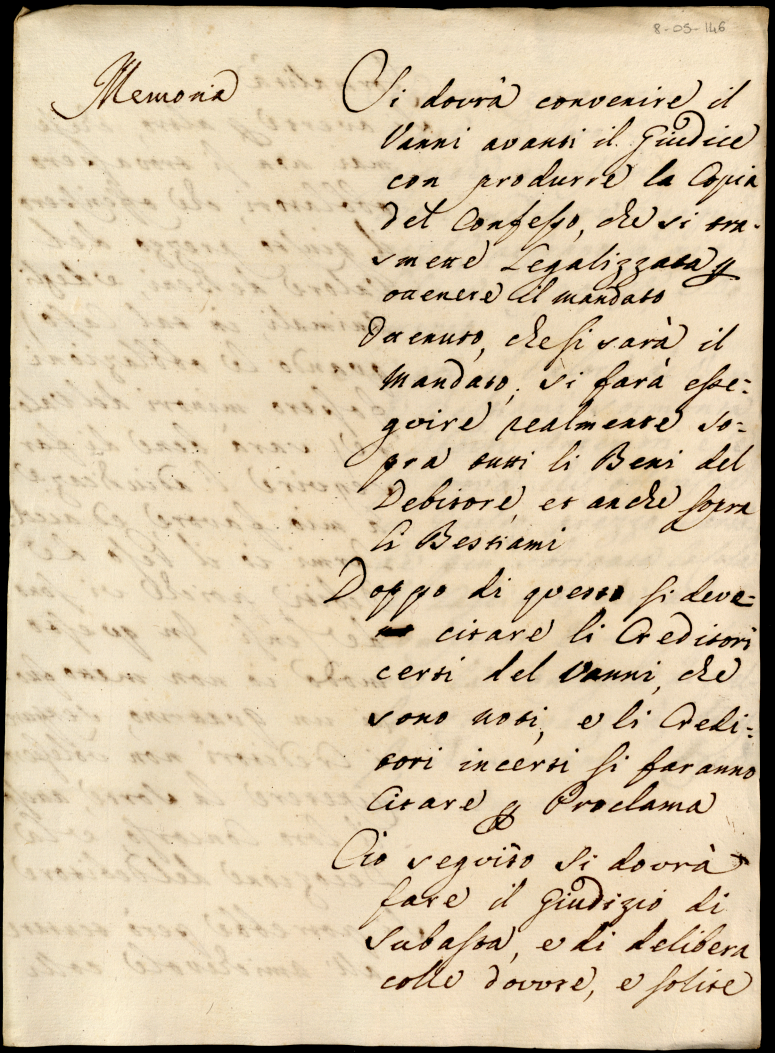 8-05-146
Memoria
Si dovrà convenire il
Vanni avanti il Giudice
con produrre la Copia
del Confesso, che si tra-
smette Legalizzata p
ottenere il mandato
Ottenuto, che si sarà il
Mandato, si farà esse=
guire realmente so=
pra tutti li Beni del
Debitore, et anche sopra
li Bestiami
Doppo di questo si deve=
citare li Creditori
certi del Vanni, che
sono noti, e li Credi=
tori incerti si faranno
Citare p Proclama
Ciò seguito si dovrà
fare il Giudizio di
Subasta, e di delibera
colle dovute, e solite